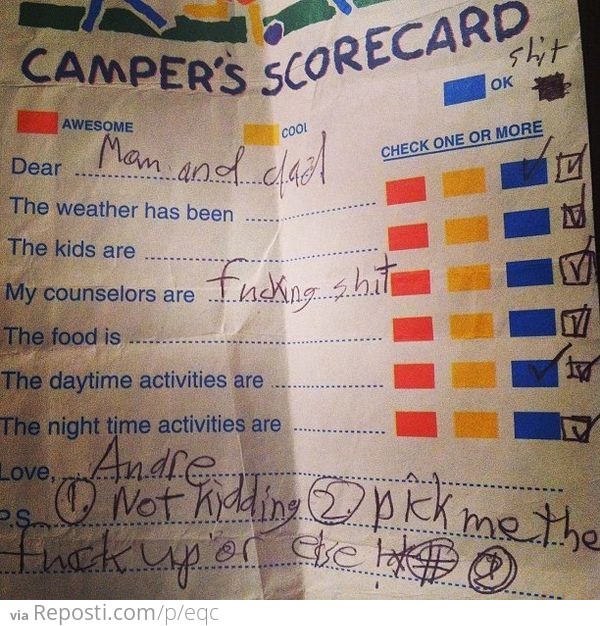 CAMPER'S SCORECARD
shit
OK
AWESOME
COOL
CHECK ONE OR MORE
Dear Mom and dad
The weather has been
The kids are
My counselors are fucking shit
The food is
The daytime activities are
The night time activities are
Love, Andre
P.S. 1. Not kidding 2. pick me the
fuck up or else !*#
via Reposti.com/p/eqc